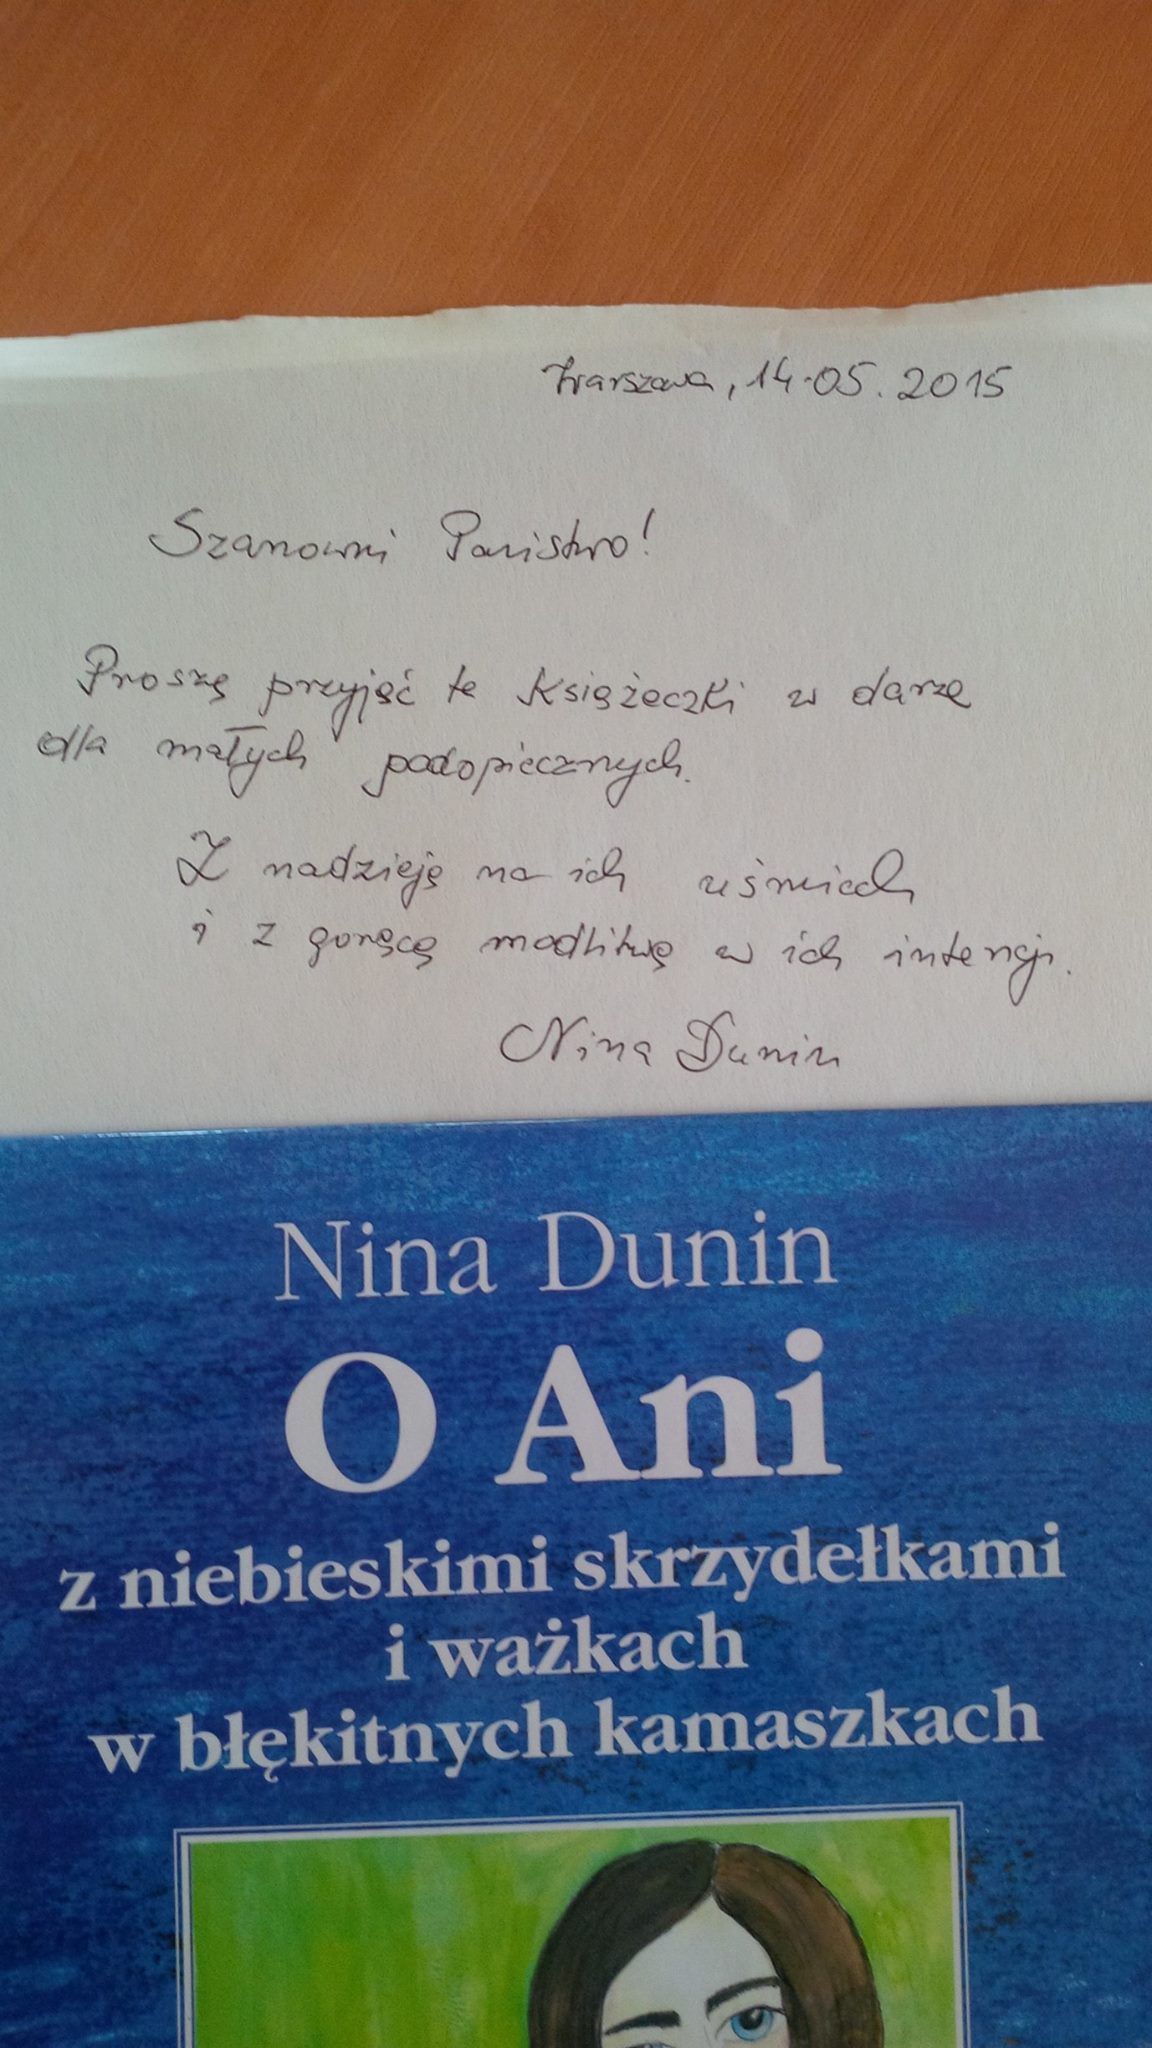 Warszawa, 14.05.2015
Szanowni Państwo!
Proszę przyjąć te książeczki w darze
dla małych podopiecznych.
Z nadzieją na ich uśmiech
i z gorącą modlitwą w ich intencji.
Nina Dunin
Nina Dunin
O Ani
z niebieskimi skrzydełkami
i ważkach
w błękitnych kamaszkach